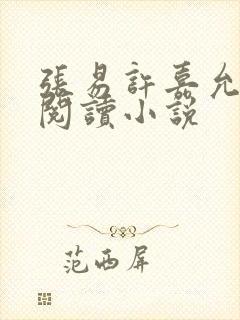 張易許嘉允
閱讀小說
范西屏